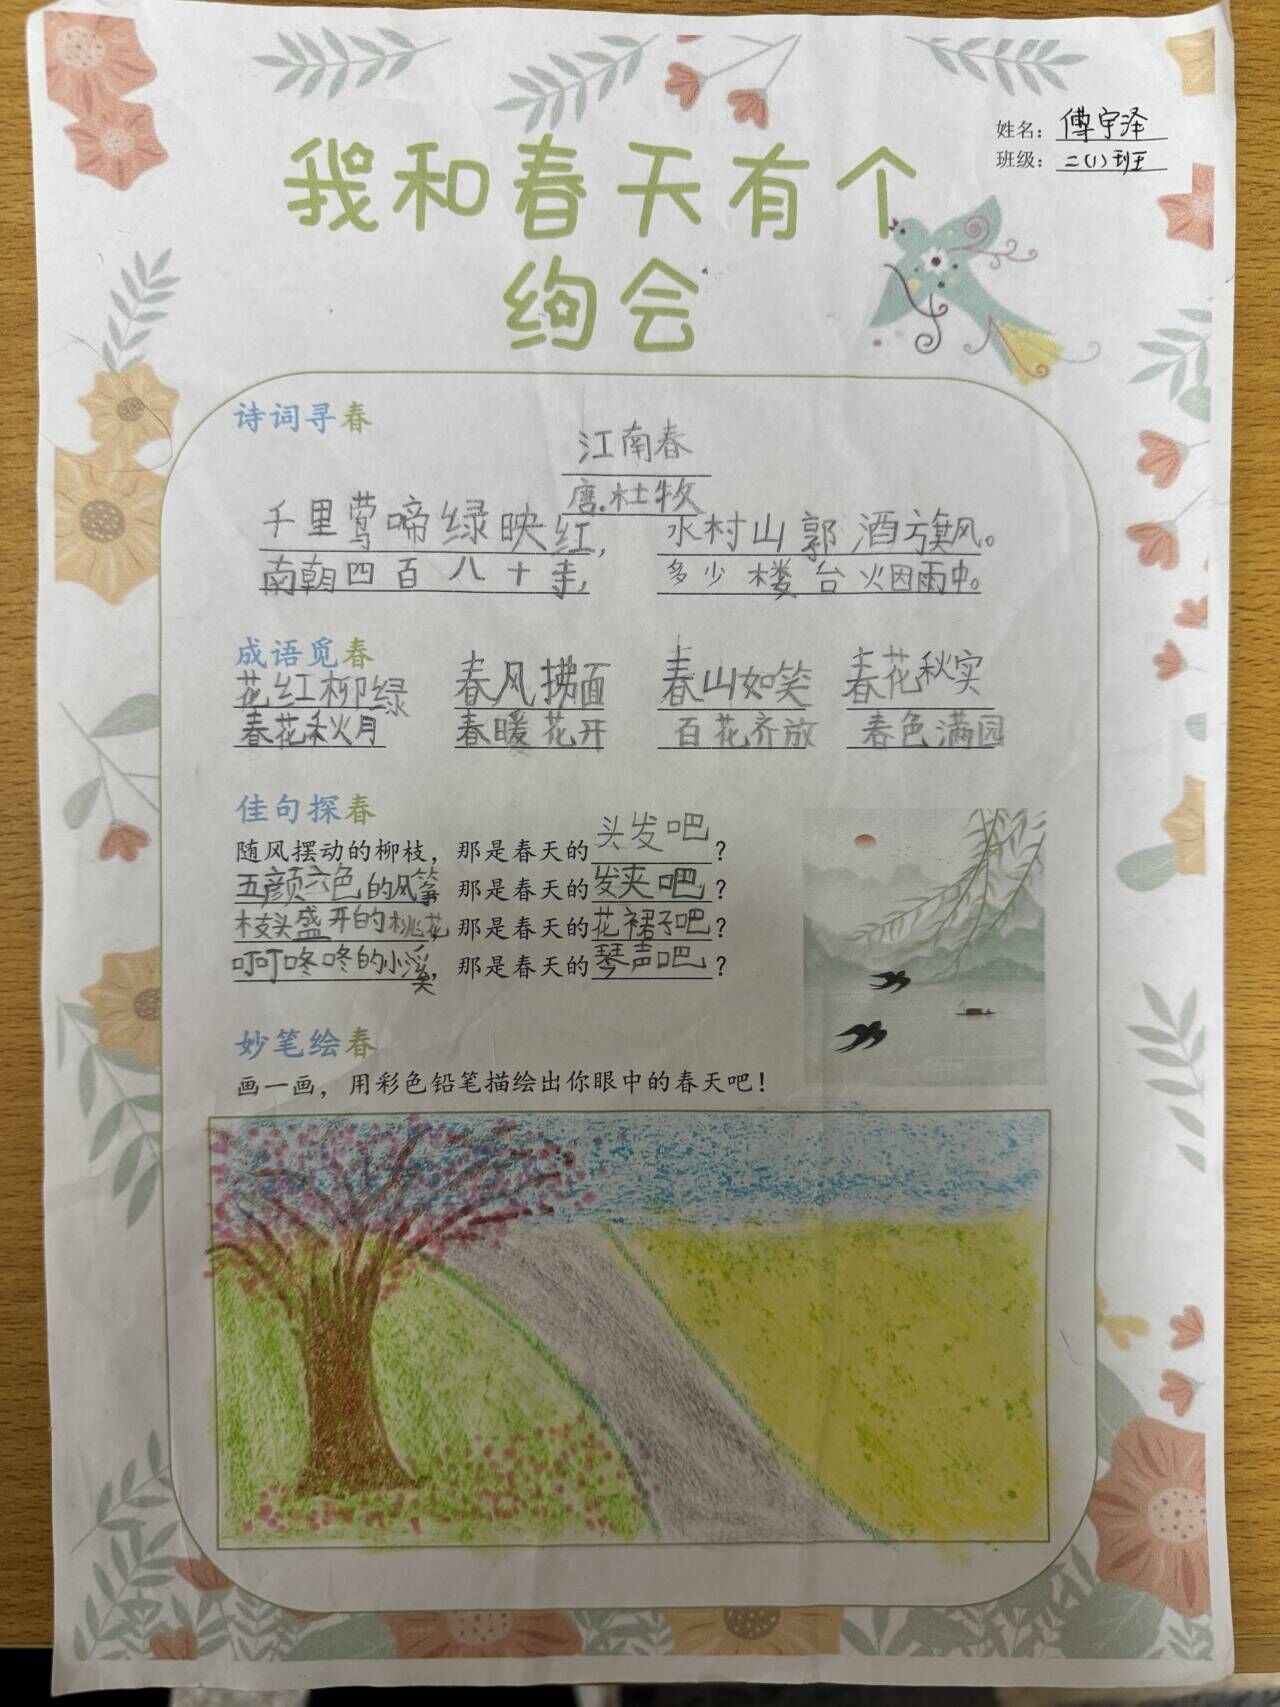 姓名：傅宇泽
班级：二(1)班
我和春天有个
约会
诗词寻春
江南春
唐.杜牧
千里莺啼绿映红，水村山郭酒旗风。
南朝四百八十寺，多少楼台火因雨中。
成语觅春
花红柳绿 春风拂面 春山如笑 春花秋实
春花秋月 春暖花开 百花齐放 春色满园
佳句探春
随风摆动的柳枝，那是春天的头发吧？
五颜六色的风筝，那是春天的发夹吧？
枝头盛开的桃花，那是春天的花裙子吧？
叮叮咚咚的小溪，那是春天的琴声吧？
妙笔绘春
画一画，用彩色铅笔描绘出你眼中的春天吧！